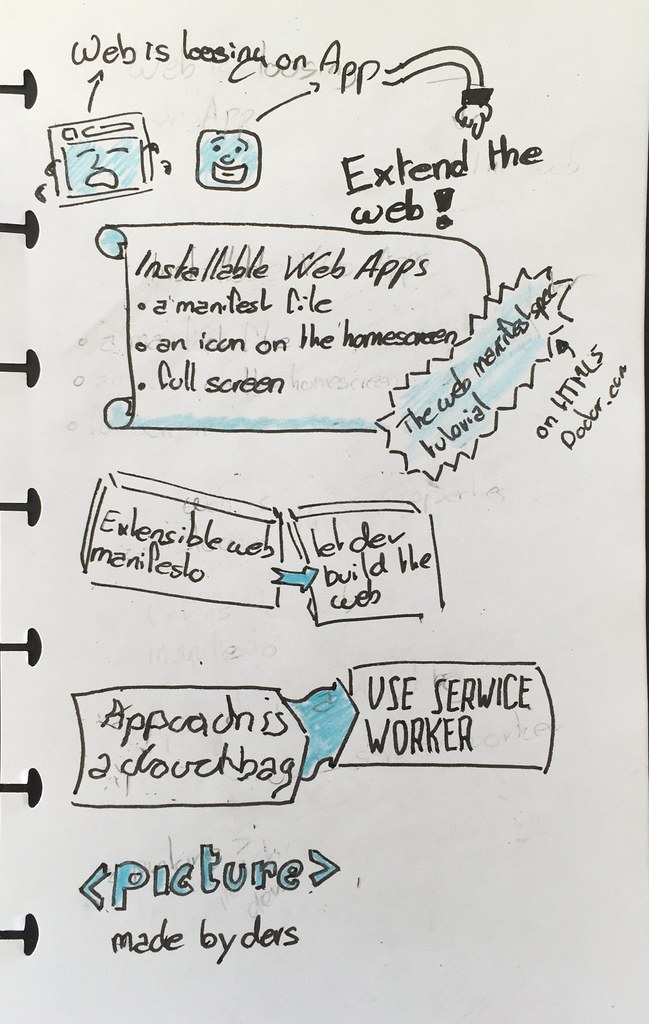 Web is loosing on App
Extend the
web!
Installable Web Apps
• a manifest file
• an icon on the homescreen
• full screen
The web manifest spec
tutorial
on HTML5
Doctor.com
Extensible web
manifesto
let dev
build the
web
Appcach is
a douchbag
USE SERWICE
WORKER
<picture>
made by devs